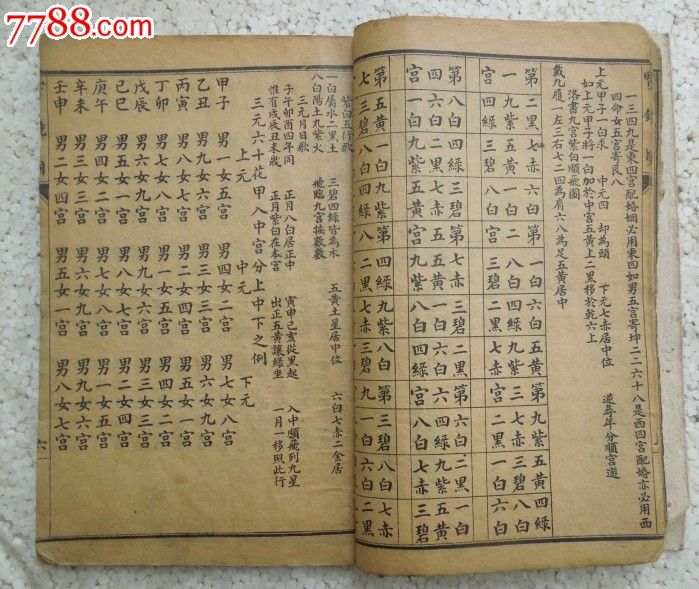 7788.com
一三四九是東四宮配婚姻必用東四如男五宮寄坤二二六十八是西四宮配婚亦必用西
四命女五宮寄艮八
上元甲子一白求 中元四 却為頭 下元七赤居中位 逆尋年分順宮遊
如上元甲子將一白加於中宮五黃上二黑移於乾六上
洛書九宮紫白順飛圖
戴九履一左三右七二四為肩六八為足五黃居中
第二黑七赤六白 第一白六白五黃 第九紫五黃四綠
一九紫五黃一白 二八白四綠九紫 三七赤三碧八白
宮四綠三碧八白 宮三碧二黑七赤 宮二黑一白六白
第八白四綠三碧 第七赤三碧二黑 第六白二黑一白
四六白二黑七赤 五五黃一白六白 六四綠九紫五黃
宮一白九紫五黃 宮九紫八白四綠 宮八白七赤三碧
第五黃一白九紫 第四綠九紫八白 第三碧八白七赤
七三碧八白四綠 八二黑七赤三碧 九一白六白二黑
紫白五行歌
一白屬水二黑土 三碧四綠皆為木 五黃土星居中位 六白七赤二金居
八白陽土九紫火 飛臨九宮按數數
三元月日歌
子午卯酉四年同 正月八白居正中 寅申巳亥從黑起 入中順飛列九星
惟有戌辰丑未歲 正月紫白在本宮 出正五黃讓綠坐 一月一移照此行
三元六十花甲八中宮分上中下之例
上元 中元 下元
甲子 男一女五宮 男四女二宮 男七女八宮
乙丑 男九女六宮 男三女三宮 男六女九宮
丙寅 男八女七宮 男二女四宮 男五女一宮
丁卯 男七女八宮 男一女五宮 男四女二宮
戊辰 男六女九宮 男九女六宮 男三女三宮
己巳 男五女一宮 男八女七宮 男二女四宮
庚午 男四女二宮 男七女八宮 男一女五宮
辛未 男三女三宮 男六女九宮 男九女六宮
壬申 男二女四宮 男五女一宮 男八女七宮
六